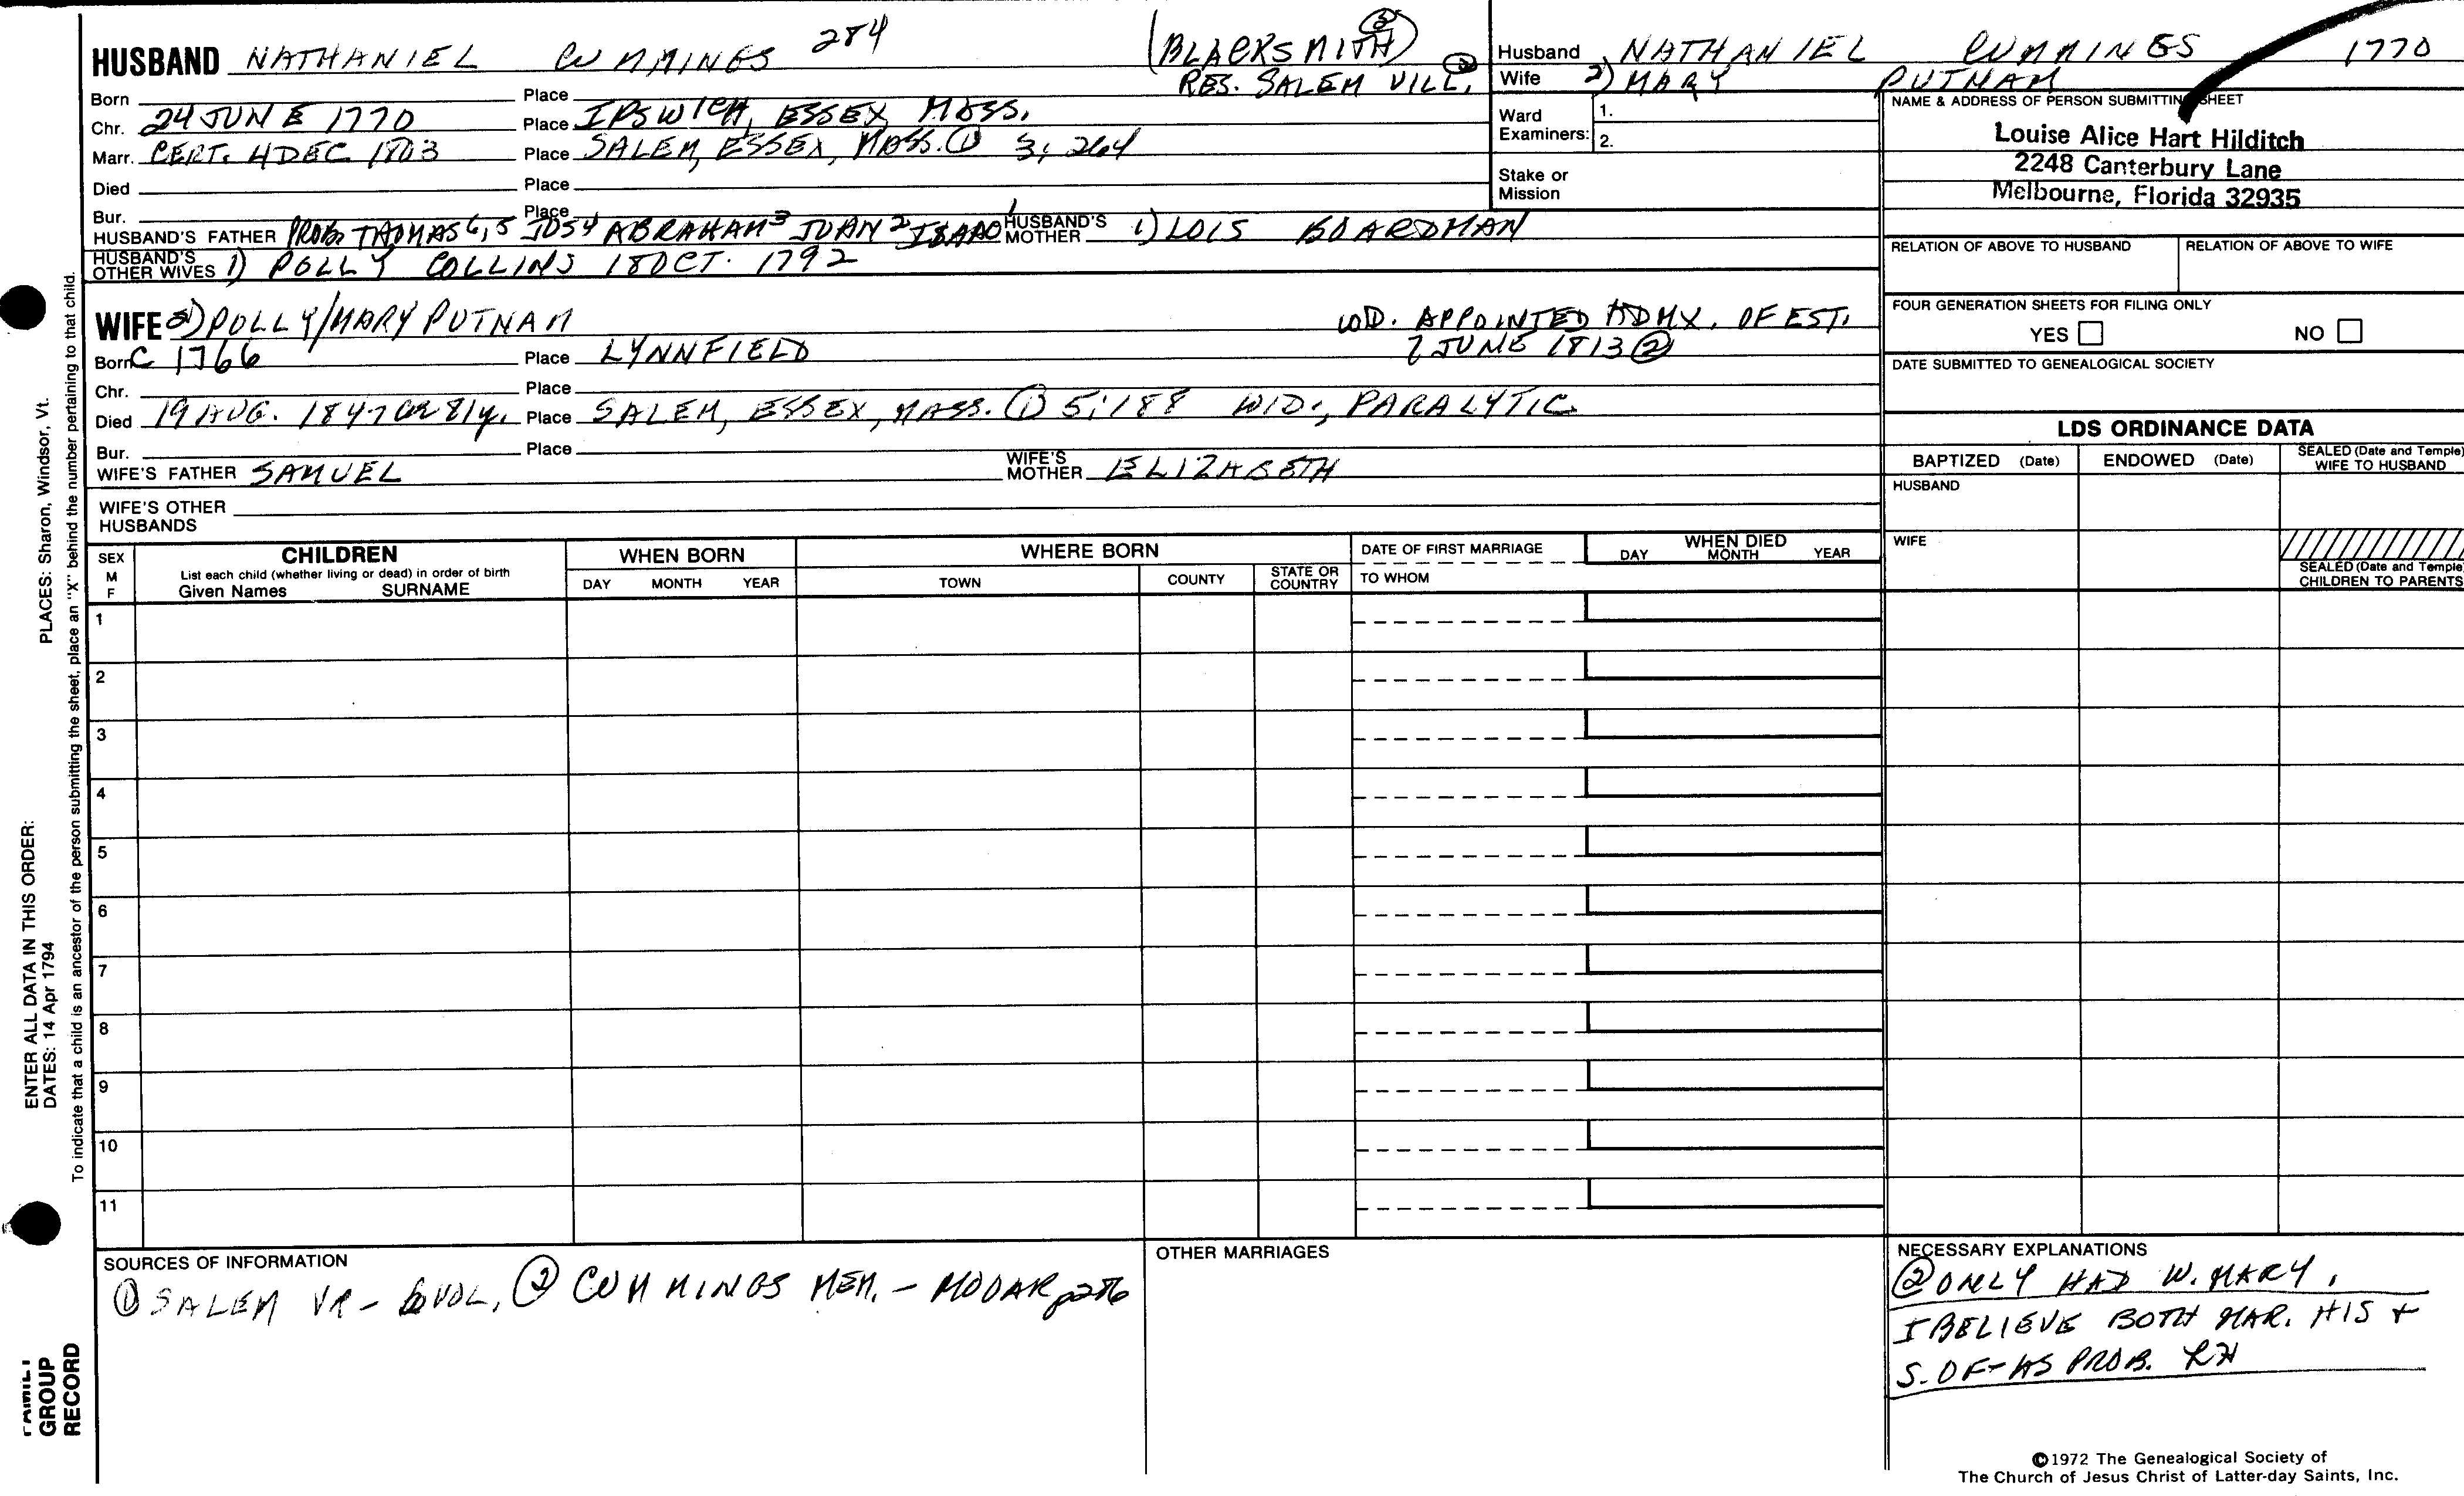 HUSBAND NATHANIEL CUMMINGS 284 (BLACKSMITH) ②
RES. SALEM VILL.
Born Place
Chr. 24 JUNE 1770 Place IPSWICH, ESSEX, MASS.
Marr. CERT. 4 DEC 1803 Place SALEM, ESSEX, MASS. ① 3; 264
Died Place
Bur. Place
HUSBAND'S FATHER PROB. THOMAS 6, 5 JOS 4 ABRAHAM 3 JOHN 2 ISAAC 1 HUSBAND'S MOTHER 1) LOIS BOARDMAN
HUSBAND'S OTHER WIVES 1) POLLY COLLINS 18 OCT. 1792
WIFE 2) POLLY/MARY PUTNAM WD. APPOINTED ADMX. OF EST.
7 JUNE 1813 ②
Born C 1766 Place LYNNFIELD
Chr. Place
Died 19 AUG. 1847 81y. Place SALEM, ESSEX, MASS. ① 5; 188 WID., PARALYTIC
Bur. Place
WIFE'S FATHER SAMUEL WIFE'S MOTHER ELIZABETH
WIFE'S OTHER
HUSBANDS
Husband NATHANIEL CUMMINGS 1770
Wife 2) MARY PUTNAM
Ward
Examiners:
1.
2.
Stake or
Mission
NAME & ADDRESS OF PERSON SUBMITTING SHEET
Louise Alice Hart Hilditch
2248 Canterbury Lane
Melbourne, Florida 32935
RELATION OF ABOVE TO HUSBAND RELATION OF ABOVE TO WIFE
FOUR GENERATION SHEETS FOR FILING ONLY
YES NO
DATE SUBMITTED TO GENEALOGICAL SOCIETY
LDS ORDINANCE DATA
BAPTIZED (Date) ENDOWED (Date) SEALED (Date and Temple)
WIFE TO HUSBAND
HUSBAND
WIFE
SEALED (Date and Temple)
CHILDREN TO PARENTS
SEX
M
F
CHILDREN
List each child (whether living or dead) in order of birth
Given Names SURNAME
WHEN BORN
DAY MONTH YEAR
WHERE BORN
TOWN COUNTY STATE OR COUNTRY
DATE OF FIRST MARRIAGE
TO WHOM
WHEN DIED
DAY MONTH YEAR
1
2
3
4
5
6
7
8
9
10
11
SOURCES OF INFORMATION
① SALEM VR - 6 VOL, ② CUMMINGS MEM. - MOOAR p286
OTHER MARRIAGES
NECESSARY EXPLANATIONS
② ONLY HAD W. MARY,
I BELIEVE BOTH MAR. HIS +
S. OF - AS PROB. LH
©1972 The Genealogical Society of
The Church of Jesus Christ of Latter-day Saints, Inc.
PLACES: Sharon, Windsor, Vt.
To indicate that a child is an ancestor of the person submitting the sheet, place an "X" behind the number pertaining to that child.
ENTER ALL DATA IN THIS ORDER:
DATES: 14 Apr 1794
FAMILY
GROUP
RECORD